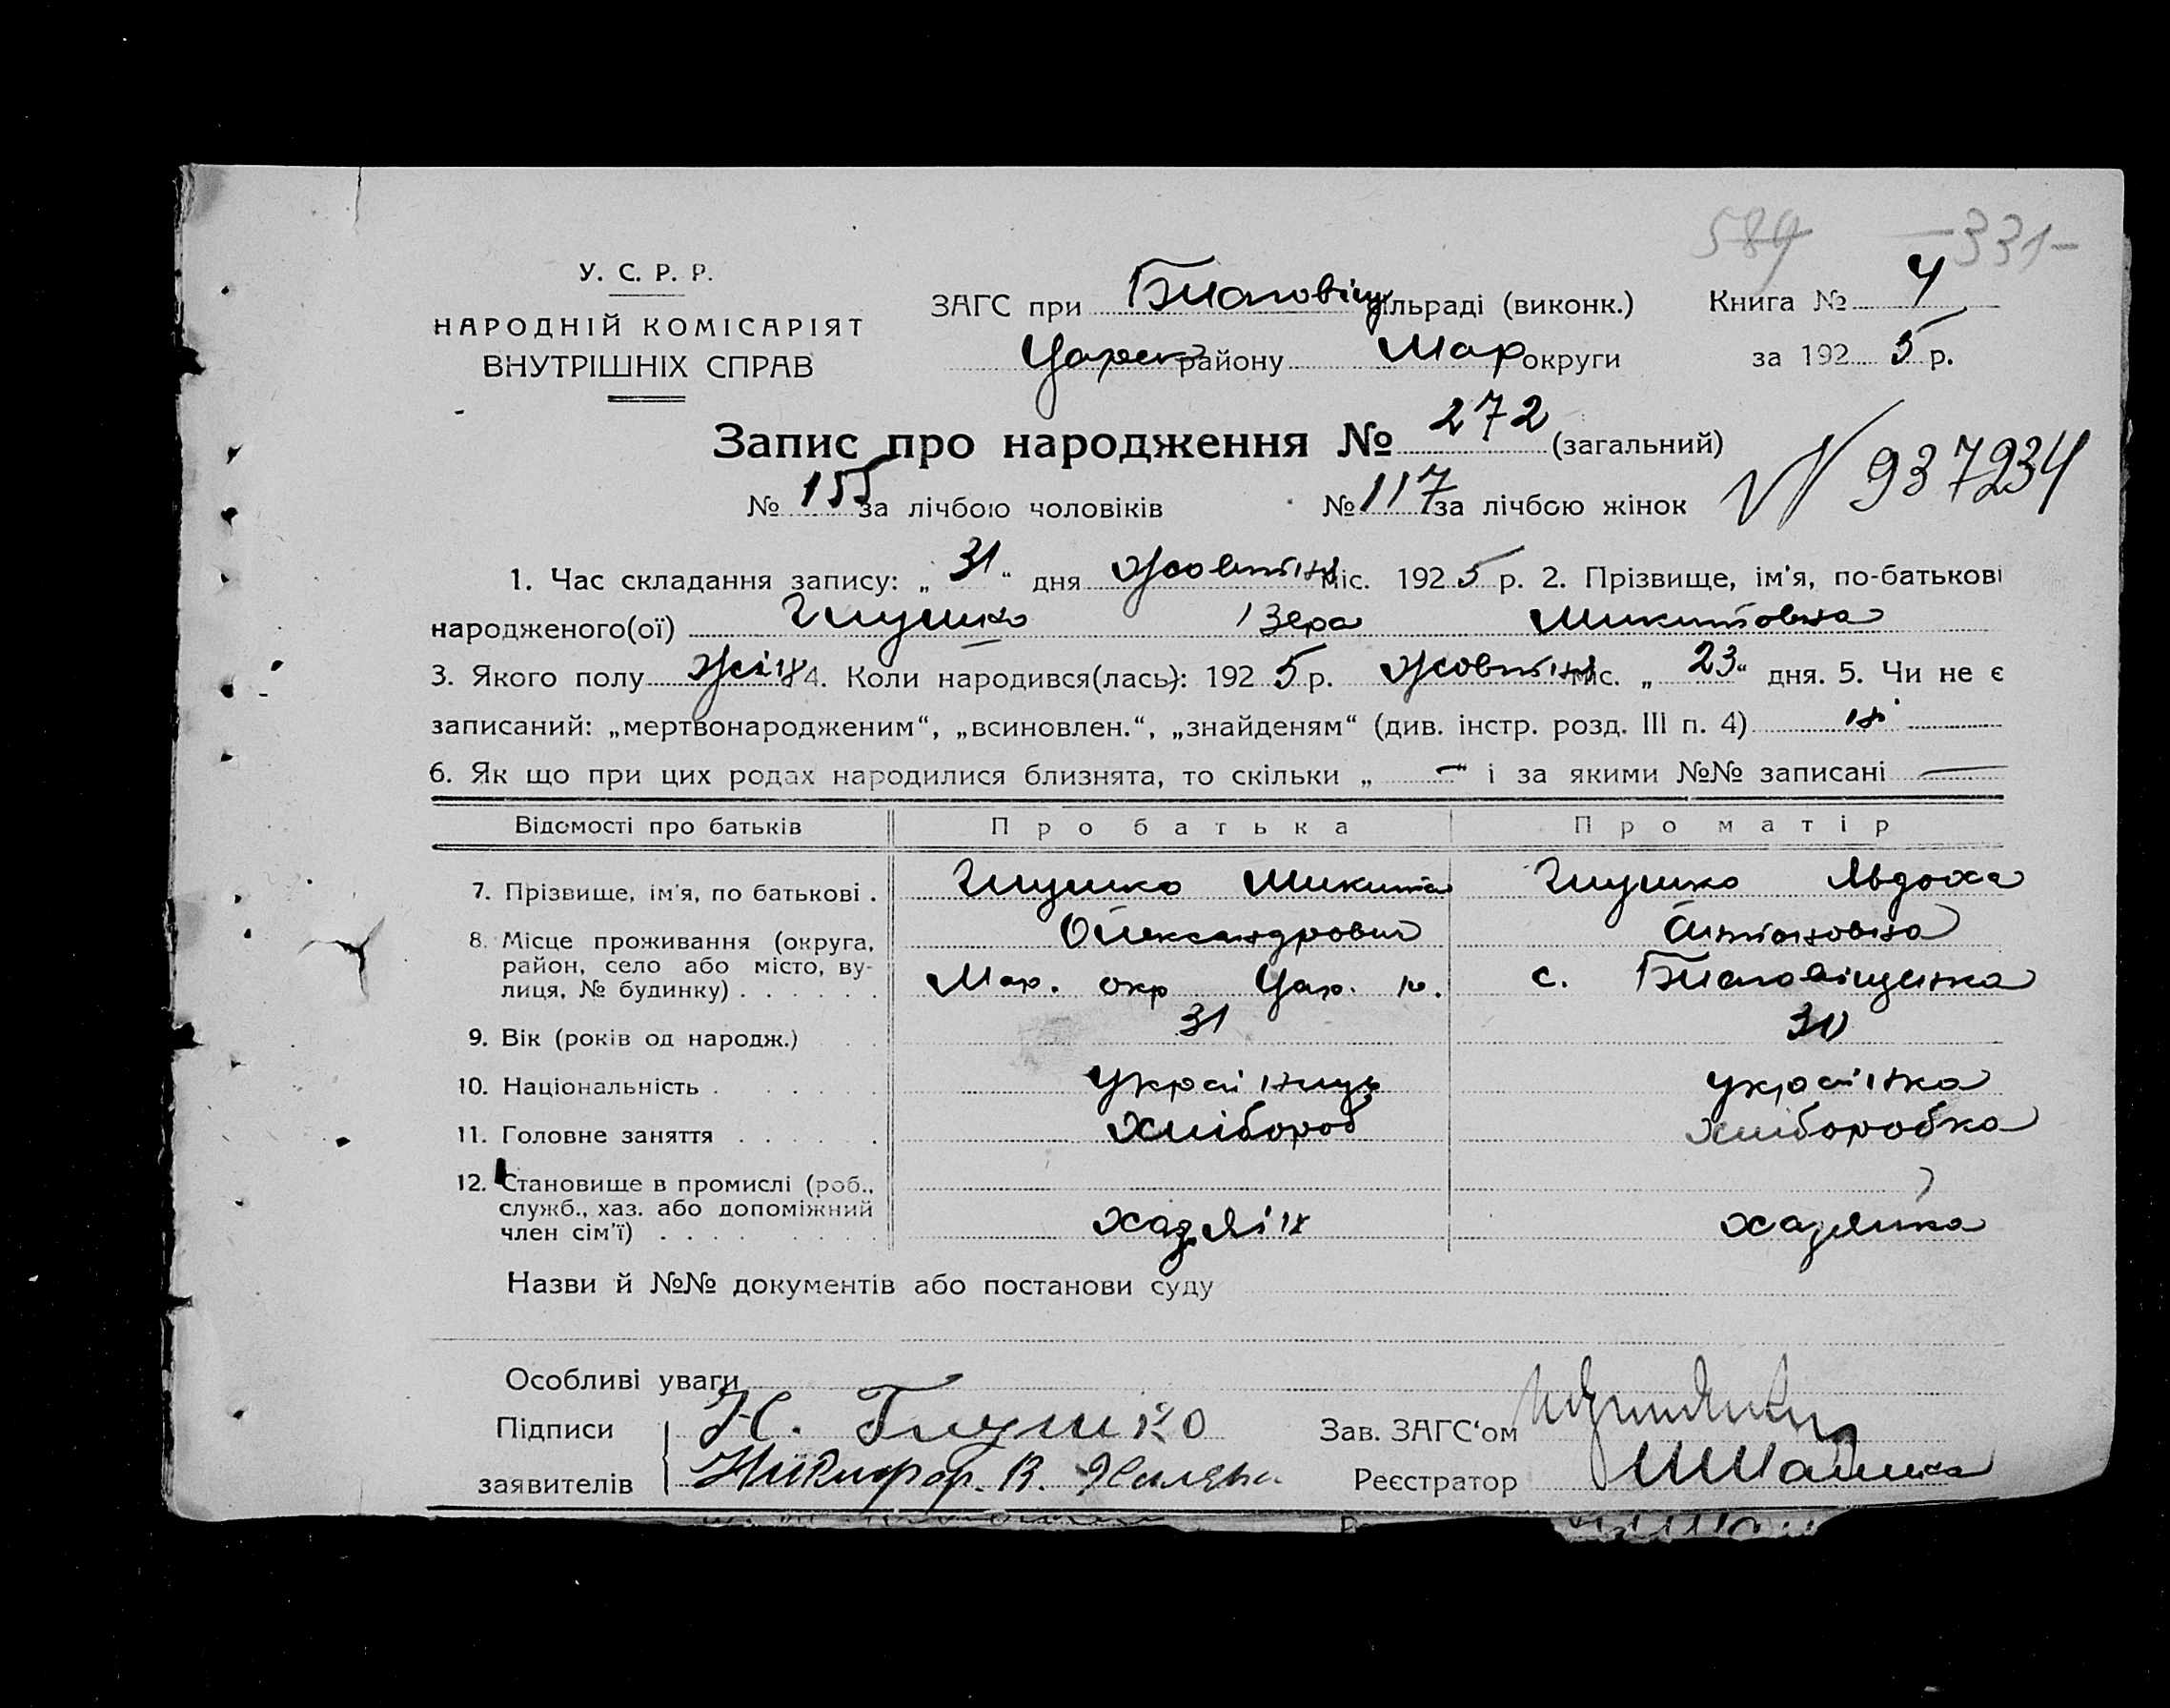 584 -331-
У. С. Р. Р.
НАРОДНІЙ КОМІСАРІЯТ
ВНУТРІШНІХ СПРАВ
ЗАГС при Благовіщ сільраді (виконк.) Книга № 4
Царек району Мар округи за 192 5 р.
Запис про народження № 272 (загальний)
№ 155 за лічбою чоловіків № 117 за лічбою жінок
N 937234
1. Час складання запису: „ 31 “ дня жовтня міс. 192 5 р. 2. Прізвище, ім'я, по-батькові
народженого(ої) Глушко Вера Микитовна
3. Якого полу жін 4. Коли народився(лась): 192 5 р. жовтня міс. „ 23 “ дня. 5. Чи не є
записаний: „мертвонародженим“, „всиновлен.“, „знайденям“ (див. інстр. розд. III п. 4) н
6. Як що при цих родах народилися близнята, то скільки „ — “ і за якими №№ записані —
Відомості про батьків Про батька Про матір
7. Прізвище, ім'я, по батькові . Глушко Микита Глушко Явдоха
Олександрович Антоновна
8. Місце проживання (округа,
район, село або місто, ву-
лиця, № будинку) . . . . . . Мар. окр Цар. р. с. Благовіщенка
9. Вік (років од народж.) . . 31 30
10. Національність . . . . . . українць українка
11. Головне заняття . . . . . хлібороб хліборобка
12. Становище в промислі (роб.,
служб., хаз. або допоміжний
член сім'ї) . . . . . . . . хазяін хазяйка
Назви й №№ документів або постанови суду
Особливі уваги
Підписи Н. Глушко Зав. ЗАГС'ом
заявителів Никифор. В. Реєстратор